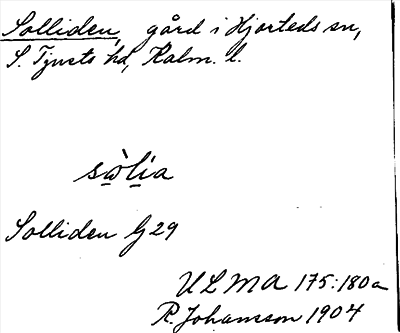 Solliden, gård i Hjorteds sn,
S. Tjusts hd, Kalm. l.
sὼlia
Solliden G 29
ULMA 175:180a
R. Johansson 1904